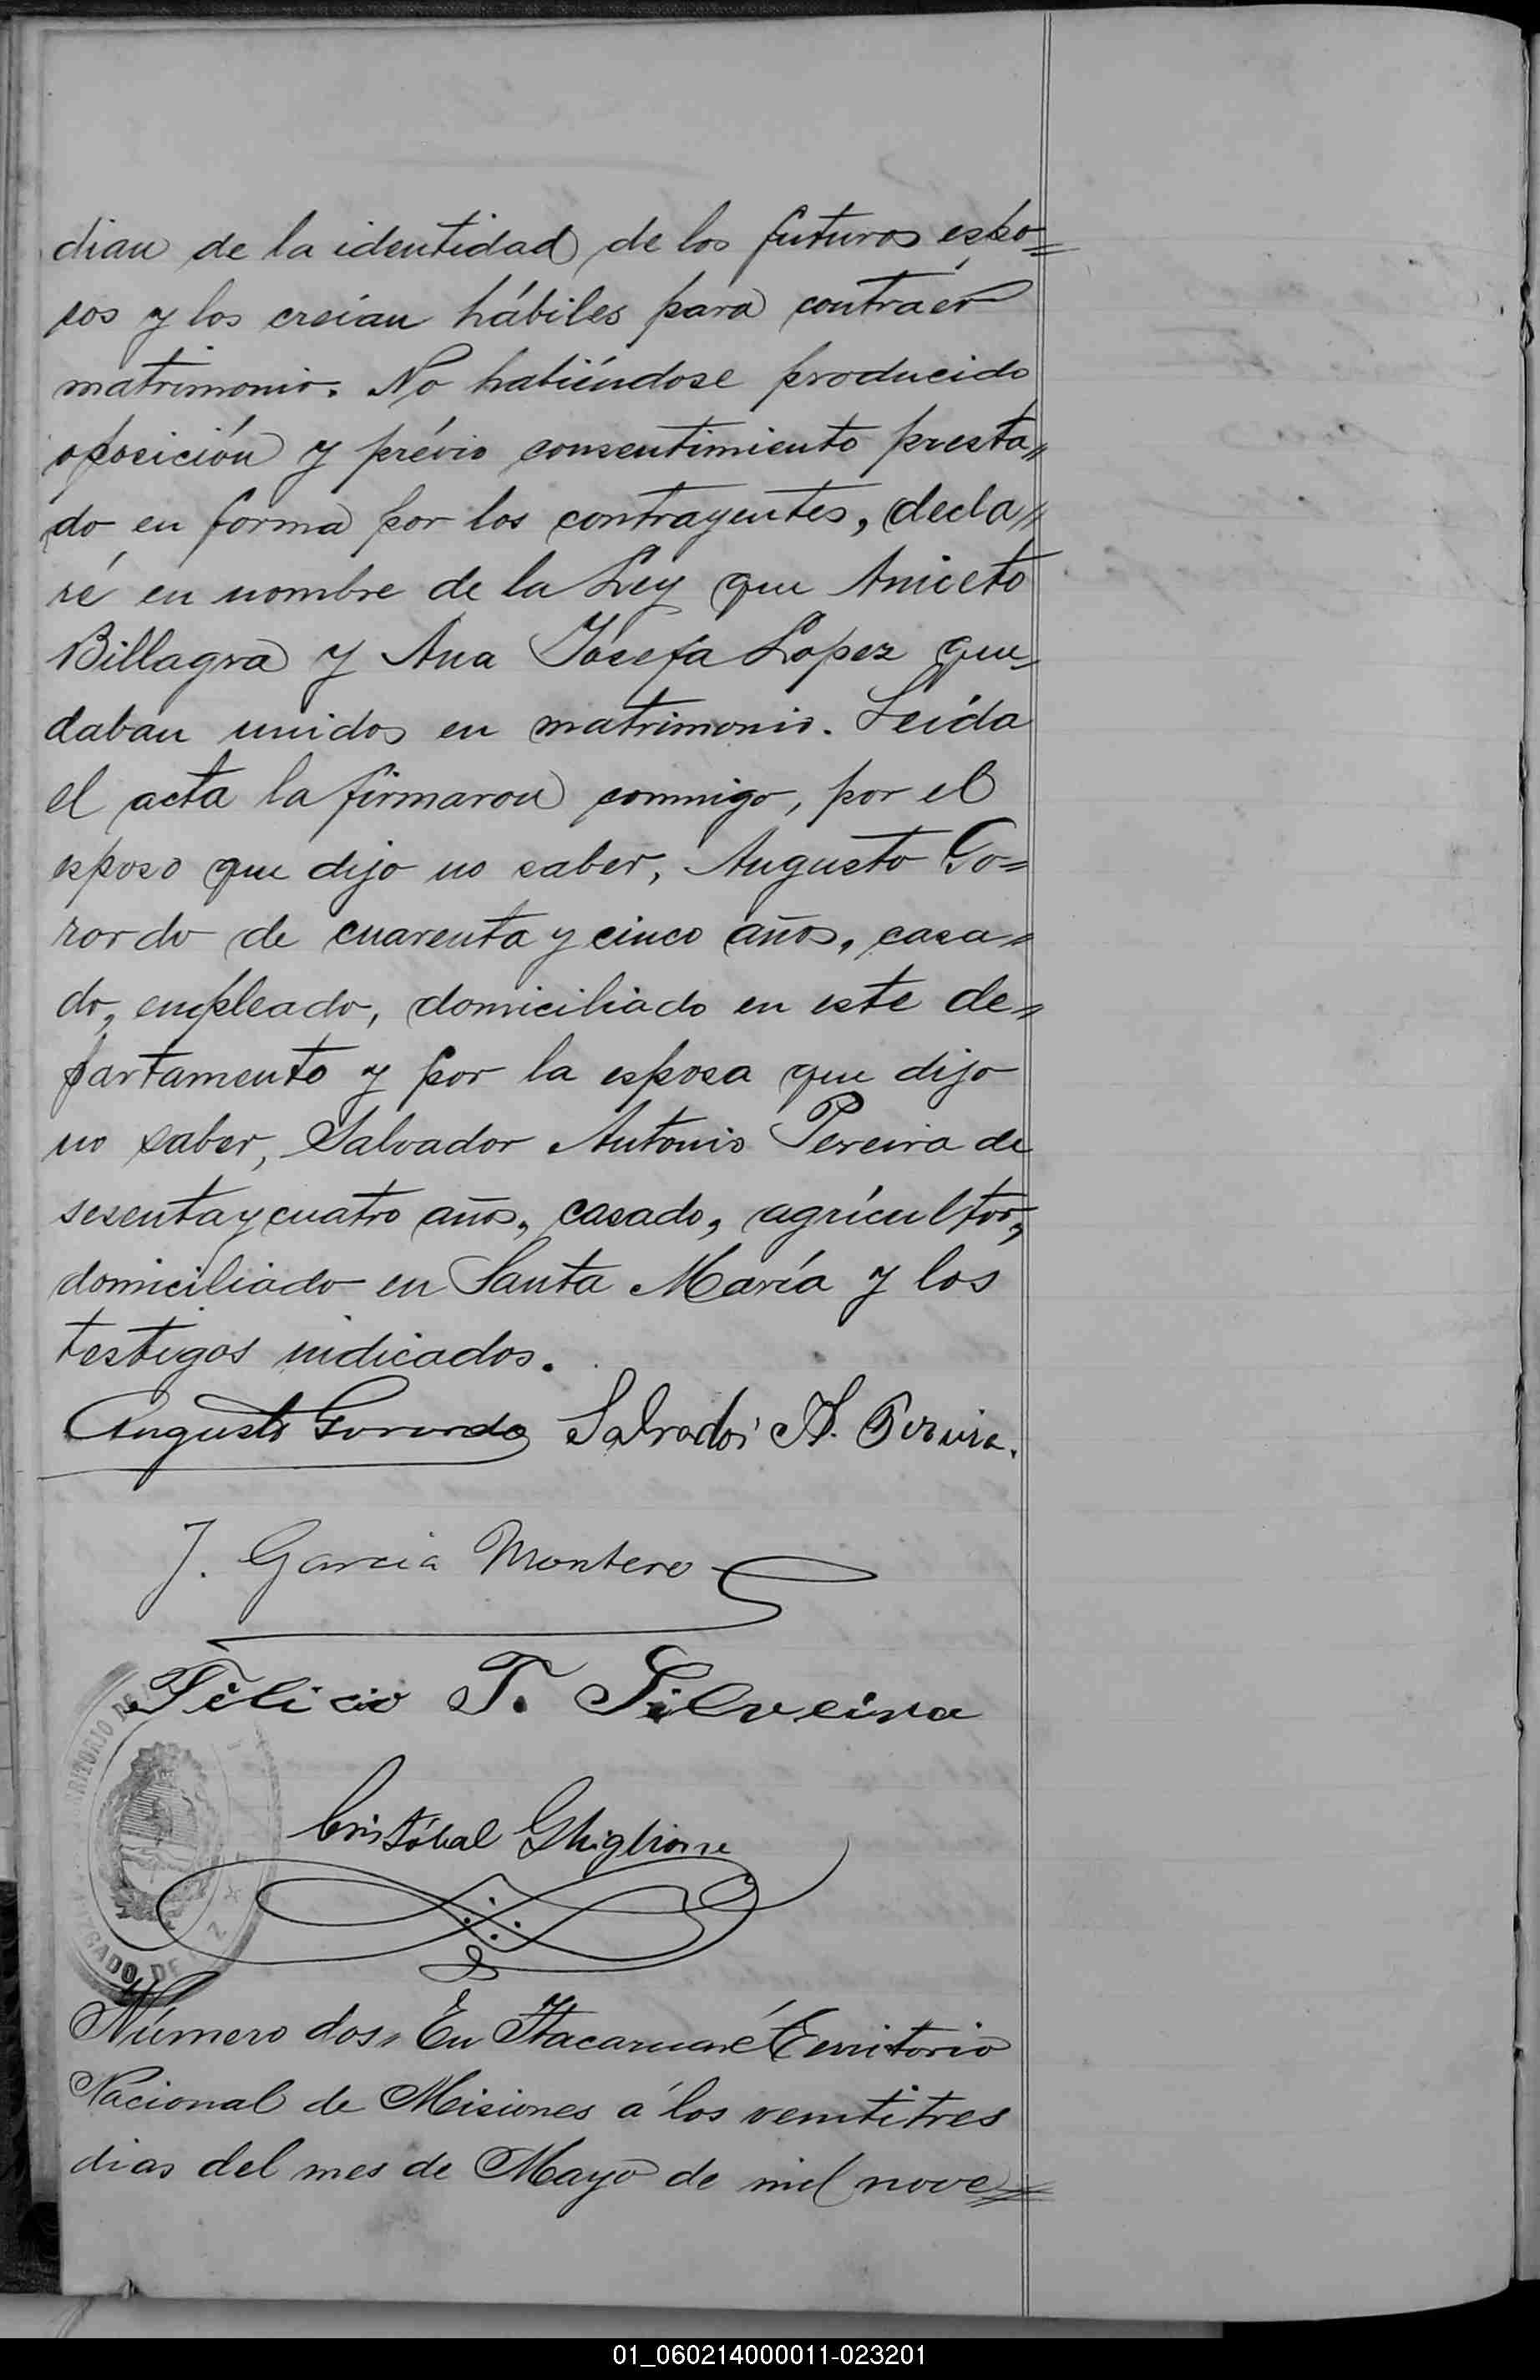 dian de la identidad de los futuros espo=
sos y los creían hábiles para contraer
matrimonio. No habiéndose producido
oposición y prévio consentimiento presta=
do en forma por los contrayentes, decla=
ré en nombre de la Ley que Aniceto
Billagra y Ana Josefa Lopez que=
daban unidos en matrimonio. Leída
el acta la firmaron conmigo, por el
esposo que dijo no saber, Augusto Go=
rordo de cuarenta y cinco años, casa=
do, empleado, domiciliado en este de=
partamento y por la esposa que dijo
no saber, Salvador Antonio Pereira de
sesenta y cuatro años, casado, agrícultor,
domiciliado en Santa María y los
testigos indicados.
Augusto Gorordo Salvador A. Pereira.
J. Garcia Montero
Felicio T. Silveira
Cristóbal Ghiglione
Número dos, En Itacaruaré Territorio
Nacional de Misiones á los veintitres
dias del mes de Mayo de mil nove=
01_060214000011-023201